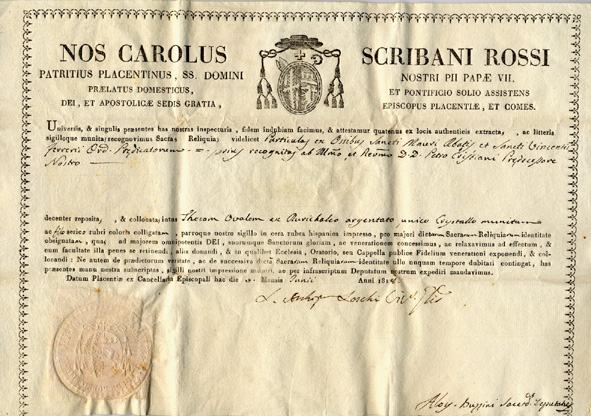 NOS CAROLUS SCRIBANI ROSSI
PATRITIUS PLACENTINUS, SS. DOMINI NOSTRI PII PAPÆ VII.
PRÆLATUS DOMESTICUS, ET PONTIFICIO SOLIO ASSISTENS
DEI, ET APOSTOLICÆ SEDIS GRATIA, EPISCOPUS PLACENTIÆ, ET COMES.
Universis, & singulis præsentes has nostras inspecturis, fidem indubiam facimus, & attestamur quatenus ex locis authenticis extracta, ac litteris
sigilloque munitas recognovimus Sacras Reliquias videlicet Particulas ex Ossibus Sancti Mauri Abatis et Sancti Vincentii
Ferrerii Ord. Predicatorum prius recognitas ab Illmo et Revmo D. D. Petro Cristiani Predecessore
Nostro
decenter reposita, & collocata intus Thecam Ovalem ex Aurichalco argentato unico Crystallo munitam
ac filo serico rubri coloris colligatam, parvoque nostro sigillo in cera rubea hispanica impresso, pro majori dictarum Sacrarum Reliquiarum identitate
obsignatam, quas ad majorem omnipotentis DEI, suorumque Sanctorum gloriam, ac venerationem concessimus, ac relaxavimus ad effectum, & cum
facultate illa penes se retinendi, aliis donandi, & in qualibet Ecclesia, Oratorio, seu Cappella publice Fidelium venerationi exponendi, & col-
locandi: Ne autem de prædictorum veritate, ac de successiva dictarum Sacrarum Reliquiarum identitate ulla unquam tempore dubitari contingat, has
præsentes manu nostra subscriptas, sigilli nostri impressione muniri, ac per infrascriptum Deputatum nostrum expediri mandavimus.
Datum Placentiæ ex Cancellaria Episcopali hac die Mensis Junii Anni
Loschi
Aloy.